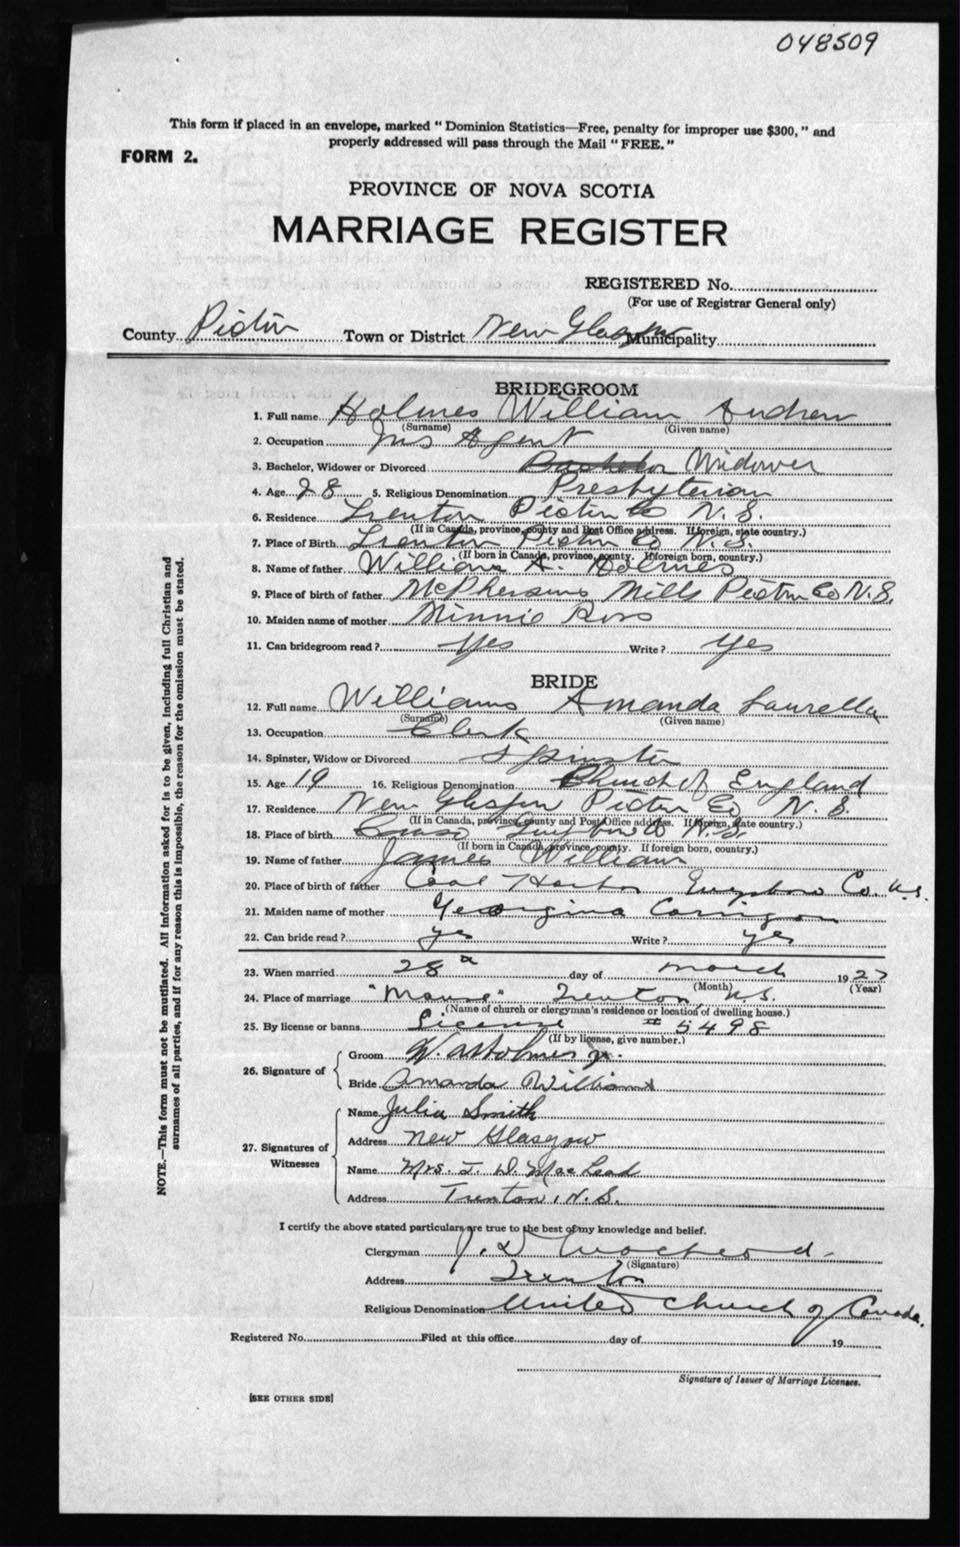 048509
This form if placed in an envelope, marked " Dominion Statistics—Free, penalty for improper use $300, " and
properly addressed will pass through the Mail " FREE. "
FORM 2.
PROVINCE OF NOVA SCOTIA
MARRIAGE REGISTER
REGISTERED No.
(For use of Registrar General only)
County Pictou Town or District New Glasgow Municipality
BRIDEGROOM
1. Full name Holmes William Andrew
(Surname) (Given name)
2. Occupation Ins Agent
3. Bachelor, Widower or Divorced Bachelor Widower
4. Age 28 5. Religious Denomination Presbyterian
6. Residence Trenton Pictou Co N.S.
(If in Canada, province, county and Post Office address. If foreign, state country.)
7. Place of Birth Trenton Pictou Co N.S.
(If born in Canada, province, county. If foreign born, country.)
8. Name of father William A. Holmes
9. Place of birth of father McPhersons Mills Pictou Co N.S.
10. Maiden name of mother Minnie Ross
11. Can bridegroom read ? Yes Write ? Yes
BRIDE
12. Full name Williams Amanda Laurella
(Surname) (Given name)
13. Occupation Clerk
14. Spinster, Widow or Divorced Spinster
15. Age 19 16. Religious Denomination Church of England
17. Residence New Glasgow Pictou Co N.S.
(If in Canada, province, county and Post Office address. If foreign, state country.)
18. Place of birth Canso Guysboro Co N.S.
(If born in Canada, province, county. If foreign born, country.)
19. Name of father James William
20. Place of birth of father Coal Harbor Guysboro Co. N.S.
21. Maiden name of mother Georgina Corrigan
22. Can bride read ? yes Write ? yes
23. When married 28th day of March 1927
(Month) (Year)
24. Place of marriage "Manse" Trenton, N.S.
(Name of church or clergyman's residence or location of dwelling house.)
25. By license or banns License # 5498
(If by license, give number.)
26. Signature of
Groom W. A Holmes Jr.
Bride Amanda Williams
27. Signatures of Witnesses
Name Julia Smith
Address New Glasgow
Name Mrs. J. D. MacLeod
Address Trenton, N.S.
I certify the above stated particulars are true to the best of my knowledge and belief.
Clergyman J. D. MacLeod
(Signature)
Address Trenton
Religious Denomination United Church of Canada.
Registered No. Filed at this office day of 19
Signature of Issuer of Marriage Licenses.
[SEE OTHER SIDE]
NOTE.—This form must not be mutilated. All information asked for is to be given, including full Christian and
surnames of all parties, and if for any reason this is impossible, the reason for the omission must be stated.